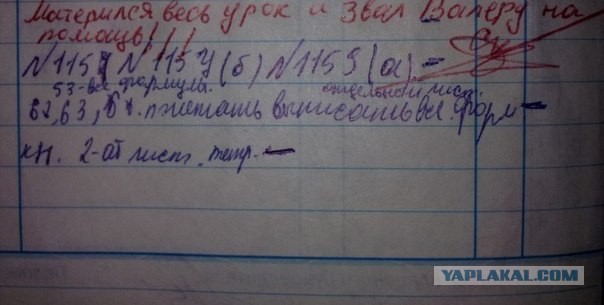 Матерился весь урок и звал Валеру на
помощь!!!
№1154 №1154(б) №1159(а)
53-все формулы. отдельный лист.
62,63, выписать все форм
кн. 2-ой лист. тетр.
YAPLAKAL.COM